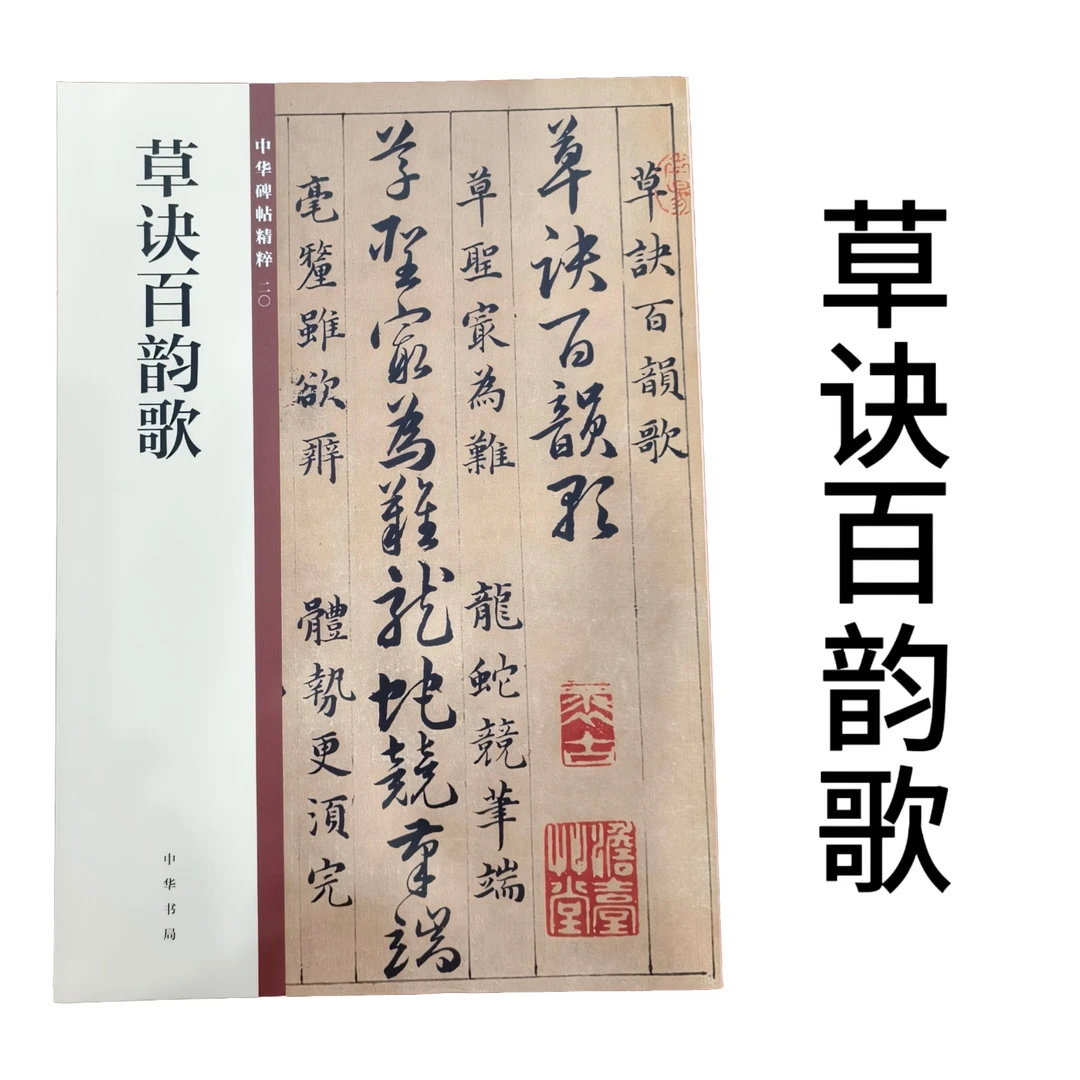 草诀百韵歌
中华书局
中华碑帖精粹 二〇
草訣百韻歌
草訣百韻歌
草聖寂為難 龍蛇競筆端
草聖寂為難龍蛇競筆端
毫釐雖欲辨 體勢更須完
草诀百韵歌